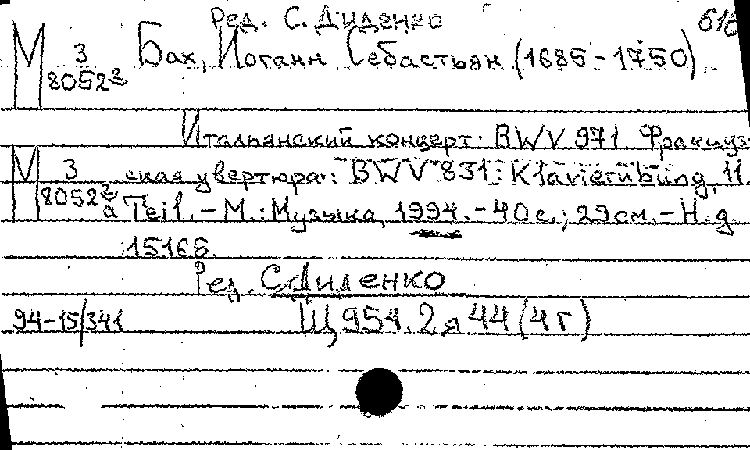 Ред. С. Диденко
М 3 Бах, Иоганн Себастьян (1685-1750)
8052²
Итальянский концерт: BWV 971. Француз-
М 3 ская увертюра: BWV 831: Klavierübung, II.
8052² а Teil. - М.: Музыка, 1994. - 40 с.; 29 см. - Н. д.
15168
Ред. С. Диденко
94-15/341 Щ 954.2 я 44 (4 г)